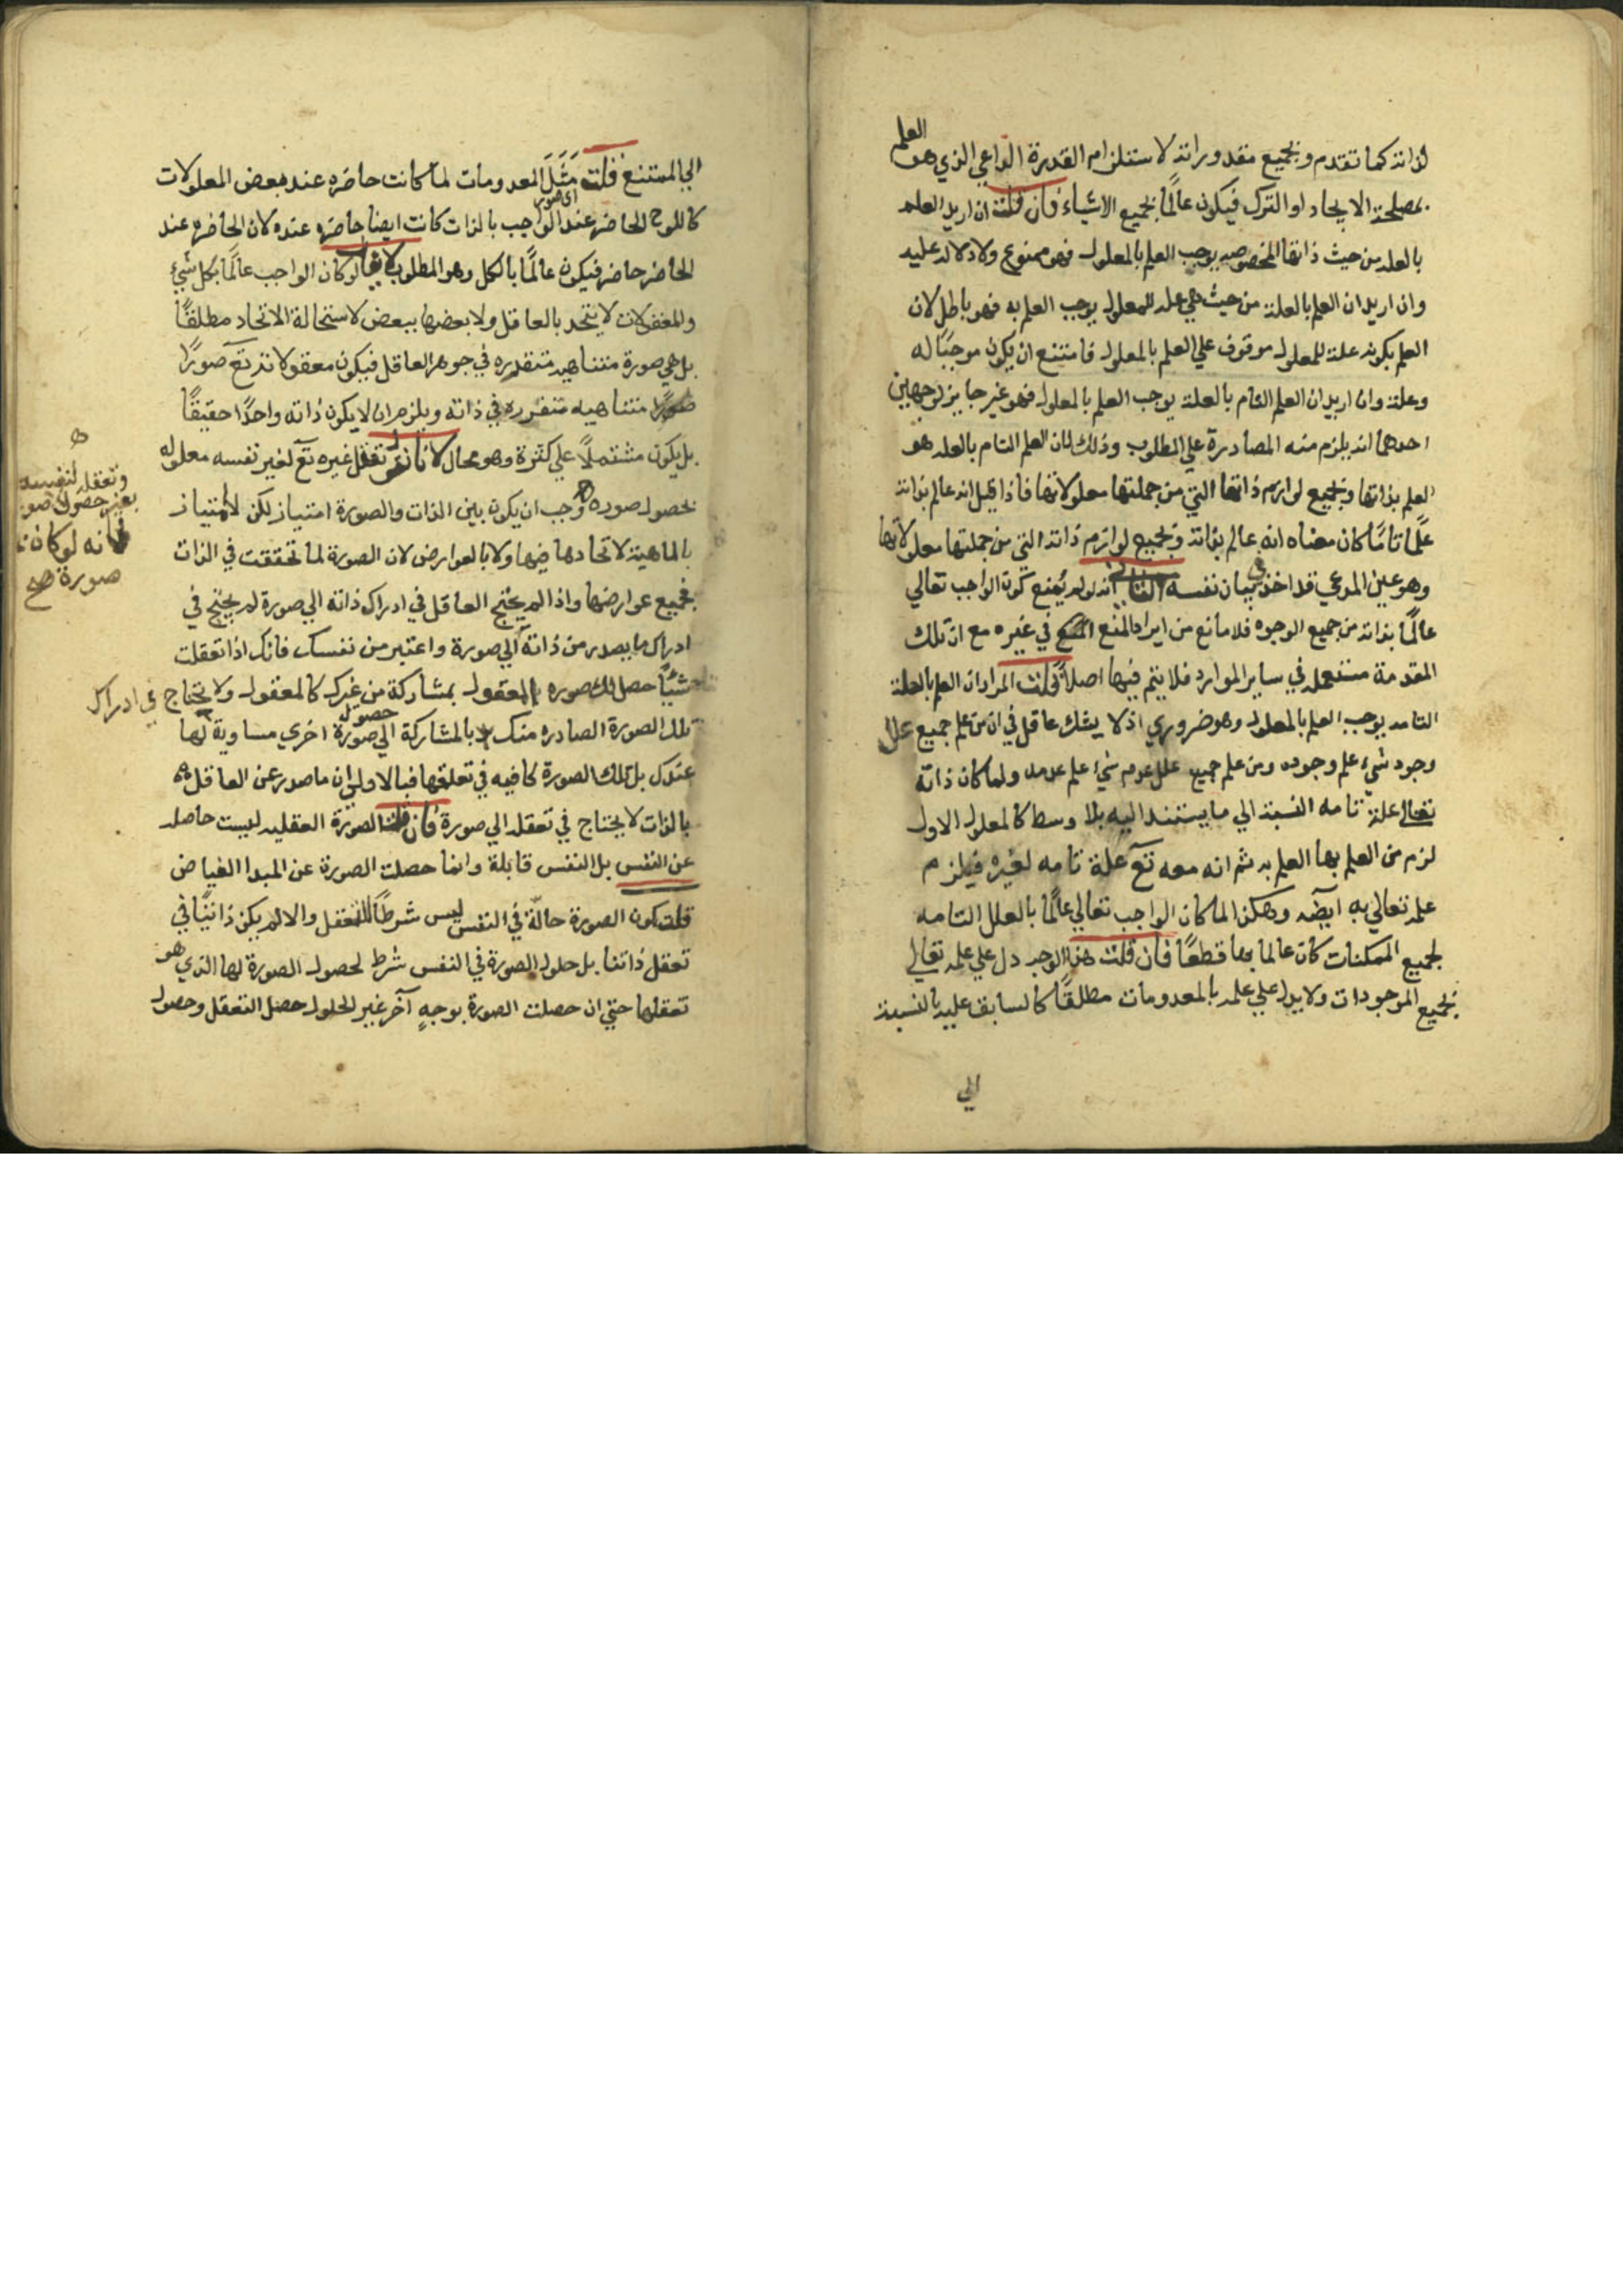 لذاته كما تقدم وبجميع مقدوراته لاستلزام القدرة الداعي الذي هو العلم
بمصلحة الايجاد او الترك فيكون عالمًا بجميع الاشياء فان قلت ان اريد العلم
بالعلة من حيث ذاتها المخصوصه يوجب العلم بالمعلول فهو ممنوع ولا دلالة عليه
وان اريد ان العلم بالعلة من حيث هي علة للمعلول يوجب العلم به فهو باطل لان
العلم بكونه علة للمعلول موقوف علي العلم بالمعلول فامتنع ان يكون موجبًا له
وعلة وان اريد ان العلم التام بالعلة يوجب العلم بالمعلول فهو غير جايز لوجهين
احدهما انه يلزم منه المصادرة علي المطلوب وذلك لان العلم التام بالعله هو
العلم بذاتها وبجميع لوازم ذاتها التي من جملتها معلولاتها فاذا قيل انه عالم بذاته
علمًا تامًا كان معناه انه عالم بذاته وبجميع لوازم ذاته التي من جملتها معلولاتها
وهو عين المدعي فقد اخذ في بيان نفسه الثاني انه لو لم يمنع كون الواجب تعالي
عالمًا بذاته من جميع الوجوه فلا مانع من ايراد المنع في غيره مع ان تلك
المقدمة مستعمله في ساير الموارد فلا يتم فيها اصلاً قلت المراد ان العلم بالعلة
التامه يوجب العلم بالمعلول وهو ضروري اذ لا يشك عاقل في ان من علم جميع علل
وجود شيء علم وجوده ومن علم جميع علل عدم شيء علم عدمه ولما كان ذاته
تعالي علة تامه النسبة الي ما يستند اليه بلا وسط كالمعلول الاول
لزم من العلم بها العلم به ثم انه معه تع علة تامه لغيره فيلزم
علمه تعالي به ايضه وهكذا لما كان الواجب تعالي عالمًا بالعلل التامه
لجميع الممكنات كان عالما بها قطعًا فان قلت هذا الوجه دل علي علمه تعالي
بجميع الموجودات ولا يدل علي علمه بالمعدومات مطلقًا كالسابق عليه بالنسبة
الي
الي الممتنع قلت مَثَلَ المعدومات لما كانت حاضره عند بعض المعلولات
اي صور
كاللوح الحاضر عند الواجب بالذات كانت ايضا حاضره عنده لان الحاضر عند
الحاضر حاضر فيكون عالمًا بالكل وهو المطلوب لا يقال لو كان الواجب عالمًا بكل شيء
والمعقولات لا يتحد بالعاقل ولا بعضها ببعض لاستحالة الاتحاد مطلقًا
بل هي صورة متناهيه متقرره في جوهر العاقل فيكون معقولاته تع صورًا
متناهيه متقرره في ذاته ويلزم ان لا يكون ذاته واحدًا حقيقًا
بل يكون مشتملاً علي كثرة وهو محال لانا نقول تعقل غيره تع لغير نفسه معلوله
بحصول صوره وجب ان يكون بين الذات والصورة امتياز لكن لا امتياز
بالماهية لاتحادها فيها ولا بالعوارض لان الصورة لما تحققت في الذات
فجميع عوارضها واذا لم يحتج العاقل في ادراك ذاته الي صورة لم يحتج في
ادراك ما يصدر من ذاته الي صورة واعتبر من نفسك فانك اذا تعقلت
شيئًا حصل لك صوره المعقول بمشاركة من غيرك كالمعقول ولا تحتاج في ادراك
تلك الصورة الصادره منك لا بالمشاركة الي حصول صورة اخري مساوية لها
عندك بل تلك الصورة كافيه في تعلقها فبالاولي ان ما صدر عن العاقل
بالذات لا يحتاج في تعقله الي صورة فان قلت الصورة العقليه ليست حاصله
عن النفس بل النفس قابلة وانما حصلت الصورة عن المبدا الفياض
قلت كون الصورة حالّة في النفس ليس شرطًا للتعقل والا لم يكن ذاتيًا في
تعقل ذاتنا بل حلول الصورة في النفس شرط لحصول الصورة لها الذي هو
تعقلها حتي ان حصلت الصورة بوجهٍ آخر غير الحلول حصل التعقل وحصول
وتعقله لنفسه
بغير حصول صو
فانه لو كان
صورة صح